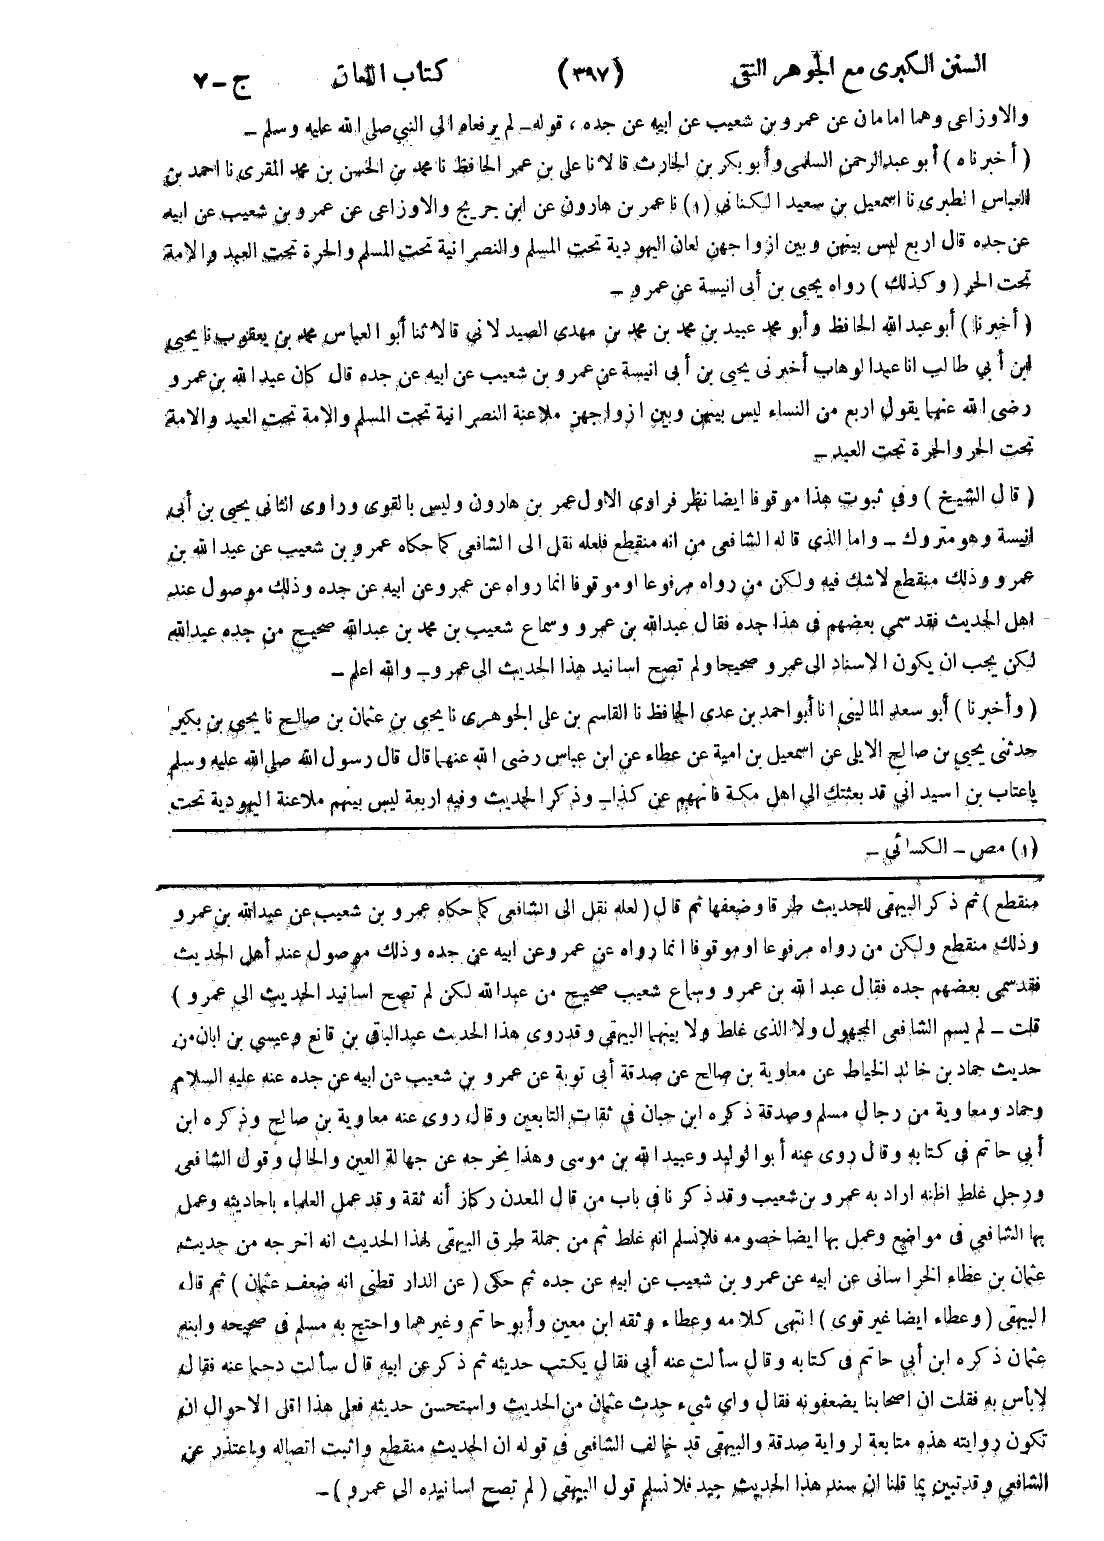 السنن الكبرى مع الجوهر النقى (٣٩٧) كتاب اللعان ج - ٧
والاوزاعى وهما امامان عن عمرو بن شعيب عن ابيه عن جده ، قوله ــ لم يرفعاه الى النبي صلى الله عليه وسلم ــ
( أخبرناه ) أبو عبدالرحمن السلمى وأبو بكر بن الحارث قالا نا على بن عمر الحافظ نا محمد بن الحسن بن محمد المقرى نا احمد بن
العباس الطبرى نا اسمعيل بن سعيد الكنانى (١) نا عمر بن هارون عن ابن جريج والاوزاعى عن عمرو بن شعيب عن ابيه
عن جده قال اربع ليس بينهن وبين ازواجهن لعان اليهودية تحت المسلم والنصرانية تحت المسلم والحرة تحت العبد والامة
تحت الحر ( وكذلك ) رواه يحيى بن أبى انيسة عن عمرو ــ
( أخبرنا ) أبو عبد الله الحافظ وأبو محمد عبيد بن محمد بن محمد بن مهدى الصيدلانى قالا ثنا أبو العباس محمد بن يعقوب نا يحيى
ابن أبي طالب انا عبدالوهاب أخبرنى يحيى بن أبى انيسة عن عمرو بن شعيب عن ابيه عن جده قال كان عبد الله بن عمرو
رضى الله عنهما يقول اربع من النساء ليس بينهن وبين ازواجهن ملاعنة النصرانية تحت المسلم والامة تحت العبد والامة
تحت الحر والحرة تحت العبد ــ
( قال الشيخ ) وفي ثبوت هذا موقوفا ايضا نظر فراوى الاول عمر بن هارون وليس بالقوى وراوى الثانى يحيى بن أبى
انيسة وهو متروك ــ واما الذى قاله الشافعى من انه منقطع فلعله نقل الى الشافعى كما حكاه عمرو بن شعيب عن عبد الله بن
عمرو وذلك منقطع لاشك فيه ولكن من رواه مرفوعا او موقوفا انما رواه عن عمرو عن ابيه عن جده وذلك موصول عند
اهل الحديث فقد سمى بعضهم فى هذا جده فقال عبدالله بن عمرو وسماع شعيب بن محمد بن عبدالله صحيح من جده عبدالله
لكن يجب ان يكون الاسناد الى عمرو صحيحا ولم تصح اسانيد هذا الحديث الى عمرو ــ والله اعلم ــ
( وأخبرنا ) أبو سعد المالينى انا أبو احمد بن عدى الحافظ نا القاسم بن على الجوهرى نا يحيى بن عثمان بن صالح نا يحيى بن بكير
حدثنى يحيى بن صالح الايلى عن اسمعيل بن امية عن عطاء عن ابن عباس رضى الله عنهما قال قال رسول الله صلى الله عليه وسلم
ياعتاب بن اسيد انى قد بعثتك الى اهل مكة فانههم عن كذا ــ وذكر الحديث وفيه اربعة ليس بينهم ملاعنة اليهودية تحت
(١) مص ــ الكسائي ــ
منقطع ) ثم ذكر البيهقى للحديث طرقا وضعفها ثم قال ( لعله نقل الى الشافعى كما حكاه عمرو بن شعيب عن عبدالله بن عمرو
وذلك منقطع ولكن من رواه مرفوعا او موقوفا انما رواه عن عمرو عن ابيه عن جده وذلك موصول عند أهل الحديث
فقد سمى بعضهم جده فقال عبد الله بن عمرو وسماع شعيب صحيح من عبدالله لكن لم تصح اسانيد الحديث الى عمرو )
قلت ــ لم يسم الشافعى المجهول ولا الذى غلط ولا بينهما البيهقى وقدروى هذا الحديث عبدالباقى بن قانع وعيسى بن ابان من
حديث حماد بن خالد الخياط عن معاوية بن صالح عن صدقة أبى توبة عن عمرو بن شعيب عن ابيه عن جده عنه عليه السلام
وحماد ومعاوية من رجال مسلم وصدقة ذكره ابن حبان فى ثقات التابعين وقال روى عنه معاوية بن صالح وذكره ابن
أبي حاتم فى كتابه وقال روى عنه أبو الوليد وعبيد الله بن موسى وهذا يخرجه عن جهالة العين والحال وقول الشافعى
ورجل غلط اظنه اراد به عمرو بن شعيب وقد ذكرنا فى باب من قال المعدن ركاز أنه ثقة وقد عمل العلماء باحاديثه وعمل
بها الشافعي فى مواضع وعمل بها ايضا خصومه فلا نسلم انه غلط ثم من جملة طرق البيهقى لهذا الحديث انه اخرجه من حديث
عثمان بن عطاء الخراسانى عن ابيه عن عمرو بن شعيب عن ابيه عن جده ثم حكى ( عن الدار قطنى انه ضعف عثمان ) ثم قال
البيهقى ( وعطاء ايضا غير قوى ) انتهى كلامه وعطاء وثقه ابن معين وأبو حاتم وغيرهما واحتج به مسلم فى صحيحه وابنه
عثمان ذكره ابن أبي حاتم فى كتابه وقال سألت عنه أبي فقال يكتب حديثه ثم ذكر عن ابيه قال سألت دحيما عنه فقال
لابأس به فقلت ان اصحابنا يضعفونه فقال واي شيء حدث عثمان من الحديث واستحسن حديثه فعلى هذا اقل الاحوال ان
تكون روايته هذه متابعة لرواية صدقة والبيهقى قد خالف الشافعى فى قوله ان الحديث منقطع واثبت اتصاله واعتذر عن
الشافعي وقدتبين بما قلنا ان سند هذا الحديث جيد فلا نسلم قول البيهقى ( لم تصح اسانيده الى عمرو ) ــ